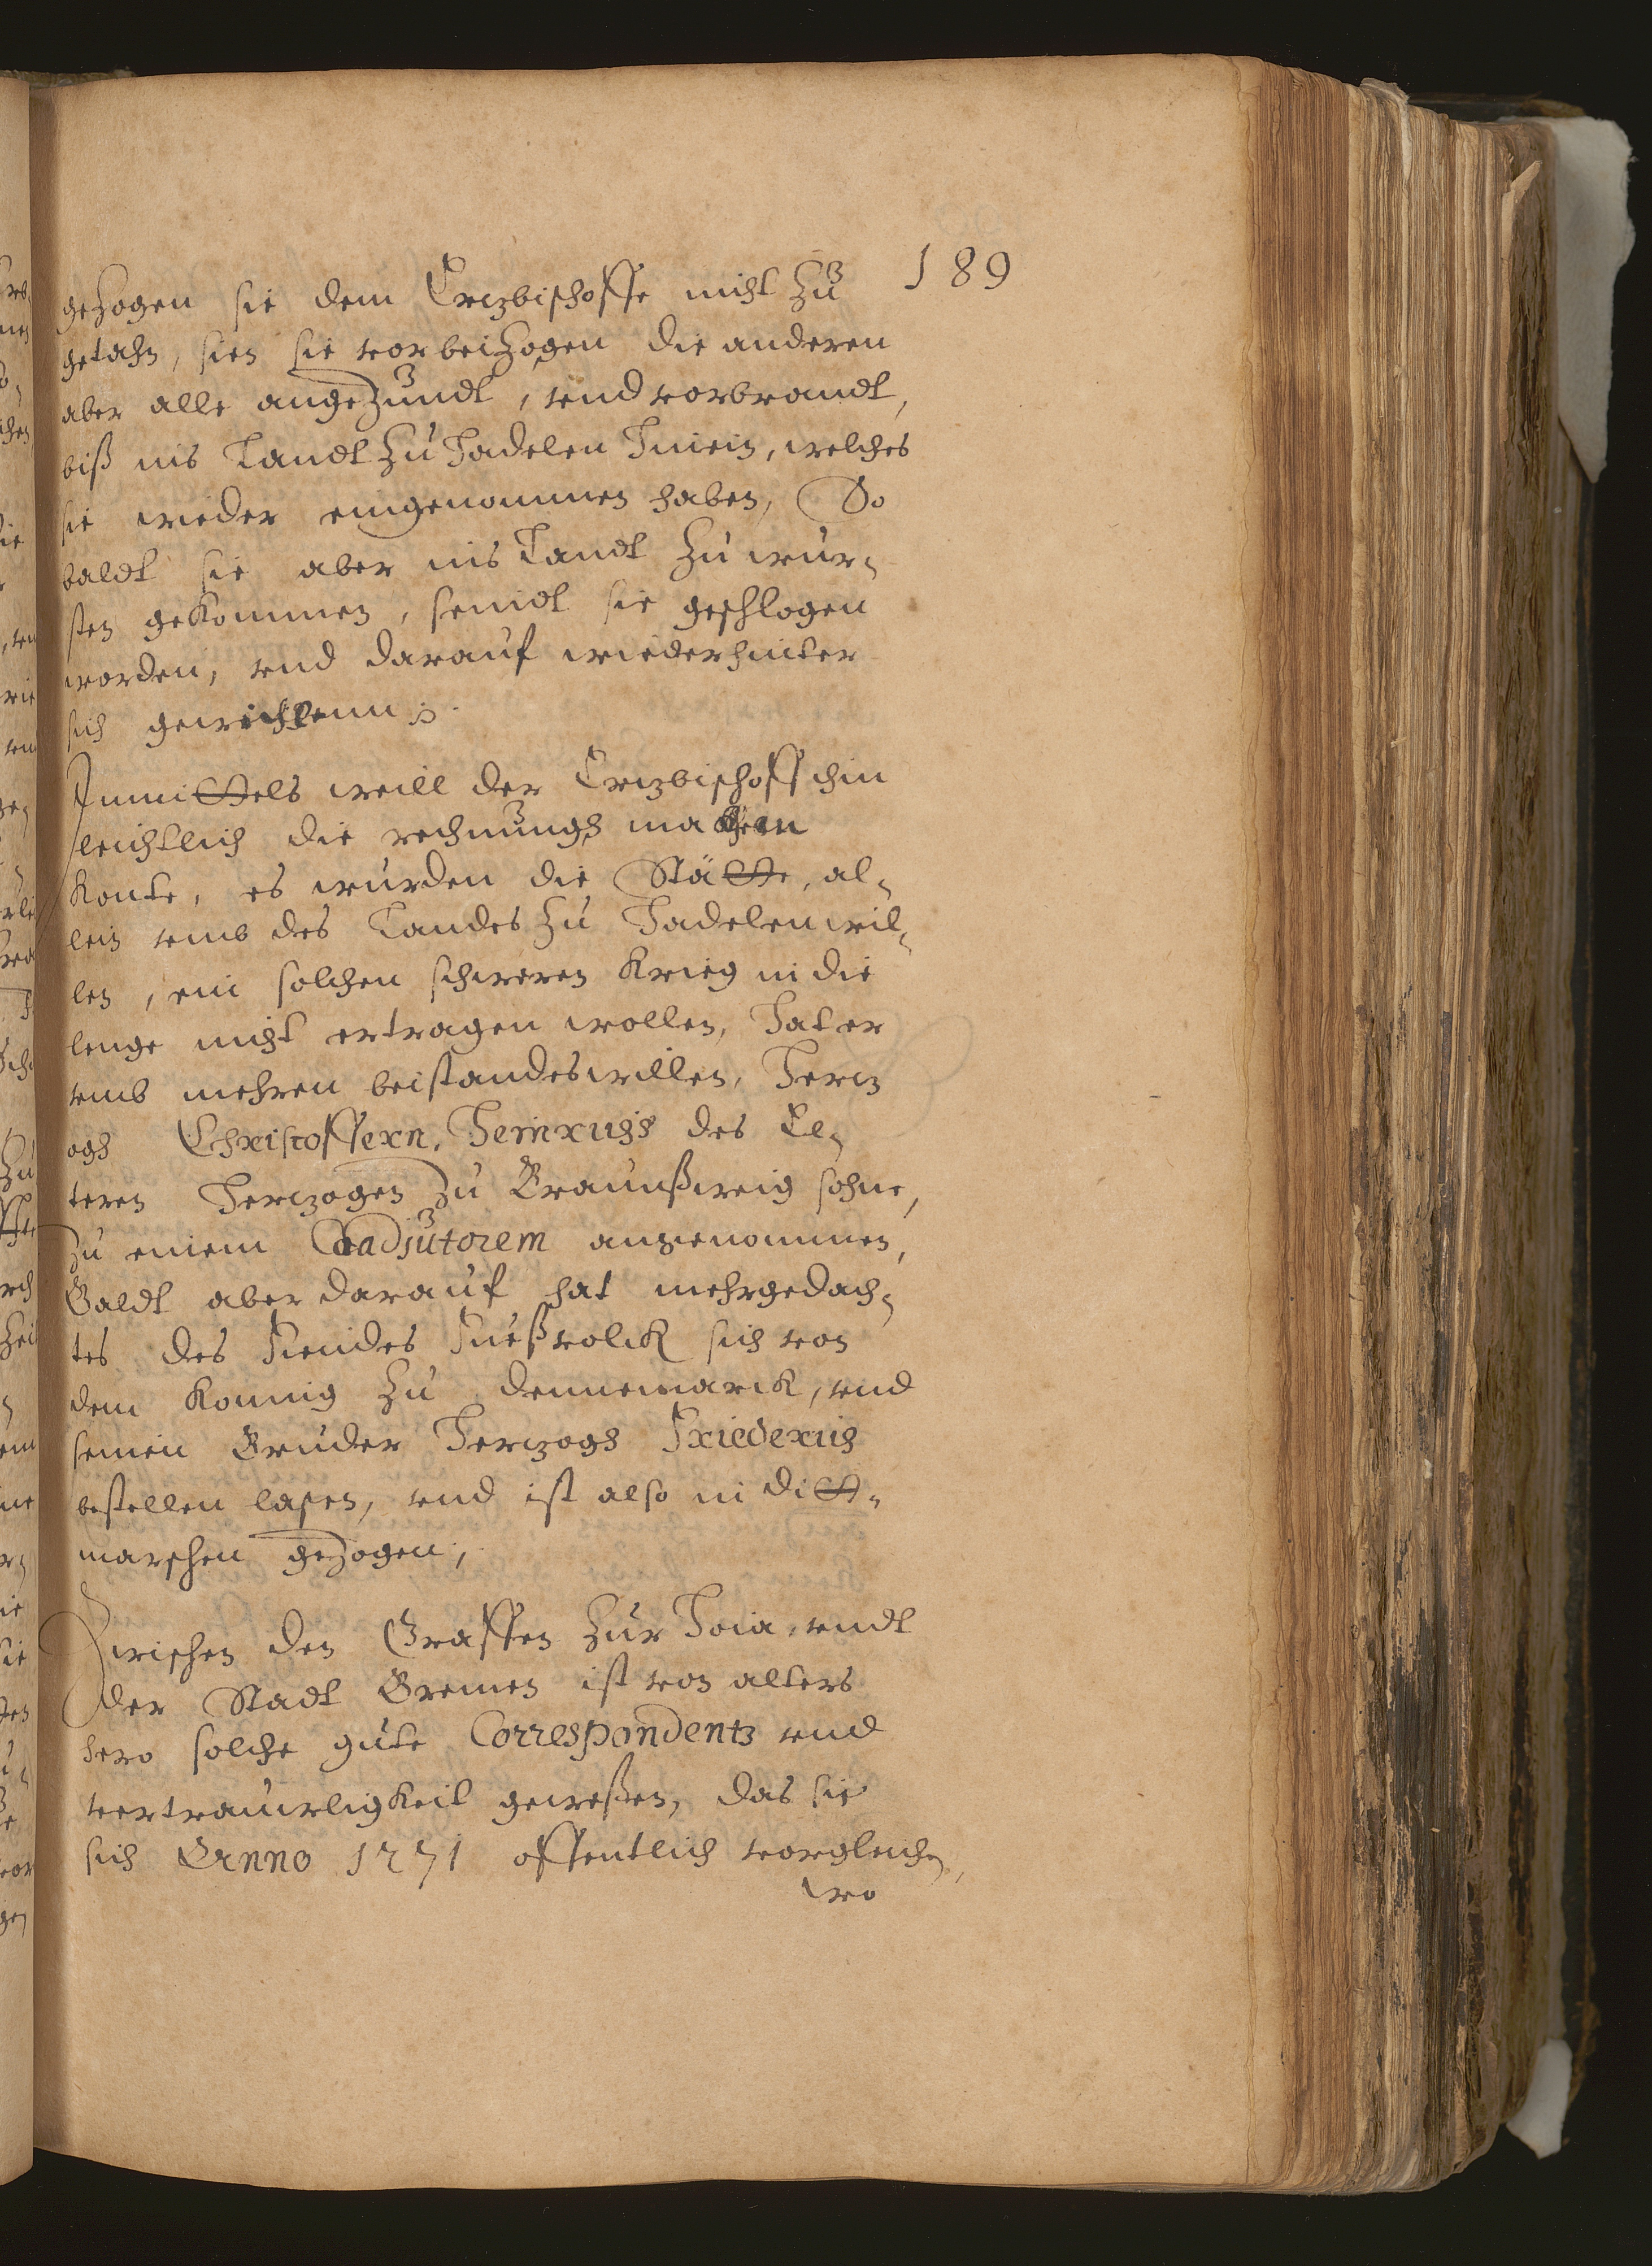 189
gezogen sie dem Ertzbischoffe nicht zu
getahn, sien sie vorbeizogen die anderen
aber alle angezundt, vnd vorbrandt,
biß ins Landt zu Hadelen hinein, welches
sie wieder eingenommen haben, So
baldt sie aber ins Landt zu wur¬
sten gekommen, seindt sie geschlogen
worden, vnd darauf wieder hinter
sich gewichenn.
Inmittels weill der Ertzbischoff ihm
leichtlich die rechnungh machen
konte, es wurden die Stätte, al¬
lein vmb des Landes zu Hadelen wil¬
len, ein solchen schweren Krieg in die
lenge nicht ertragen wollen, Hat er
vmb mehren beistandes willen, Hertz
ogh Christoffern, Heinrichs des El¬
teren Hertzogen zu Braunßweig sohne,
zu einem Coadjutorem angenommen,
Baldt aber darauf hat mehrgedach¬
tes des Fiendes Fueßvolck sich von
dem Konnig zu dennemarck, vnd
seinen Bruder Hertzogh Friederich
bestellen lassen, vnd ist also in ditt¬
marschen gezogen,
Zwischen den Graffen zur Hoia, vndt
der Stadt Bremen ist von alters
hero solche gute Correspondentz vnd
vertrauwligkeit gewessen, das sie
sich Anno 1271 offentlich vorglichen,
wo